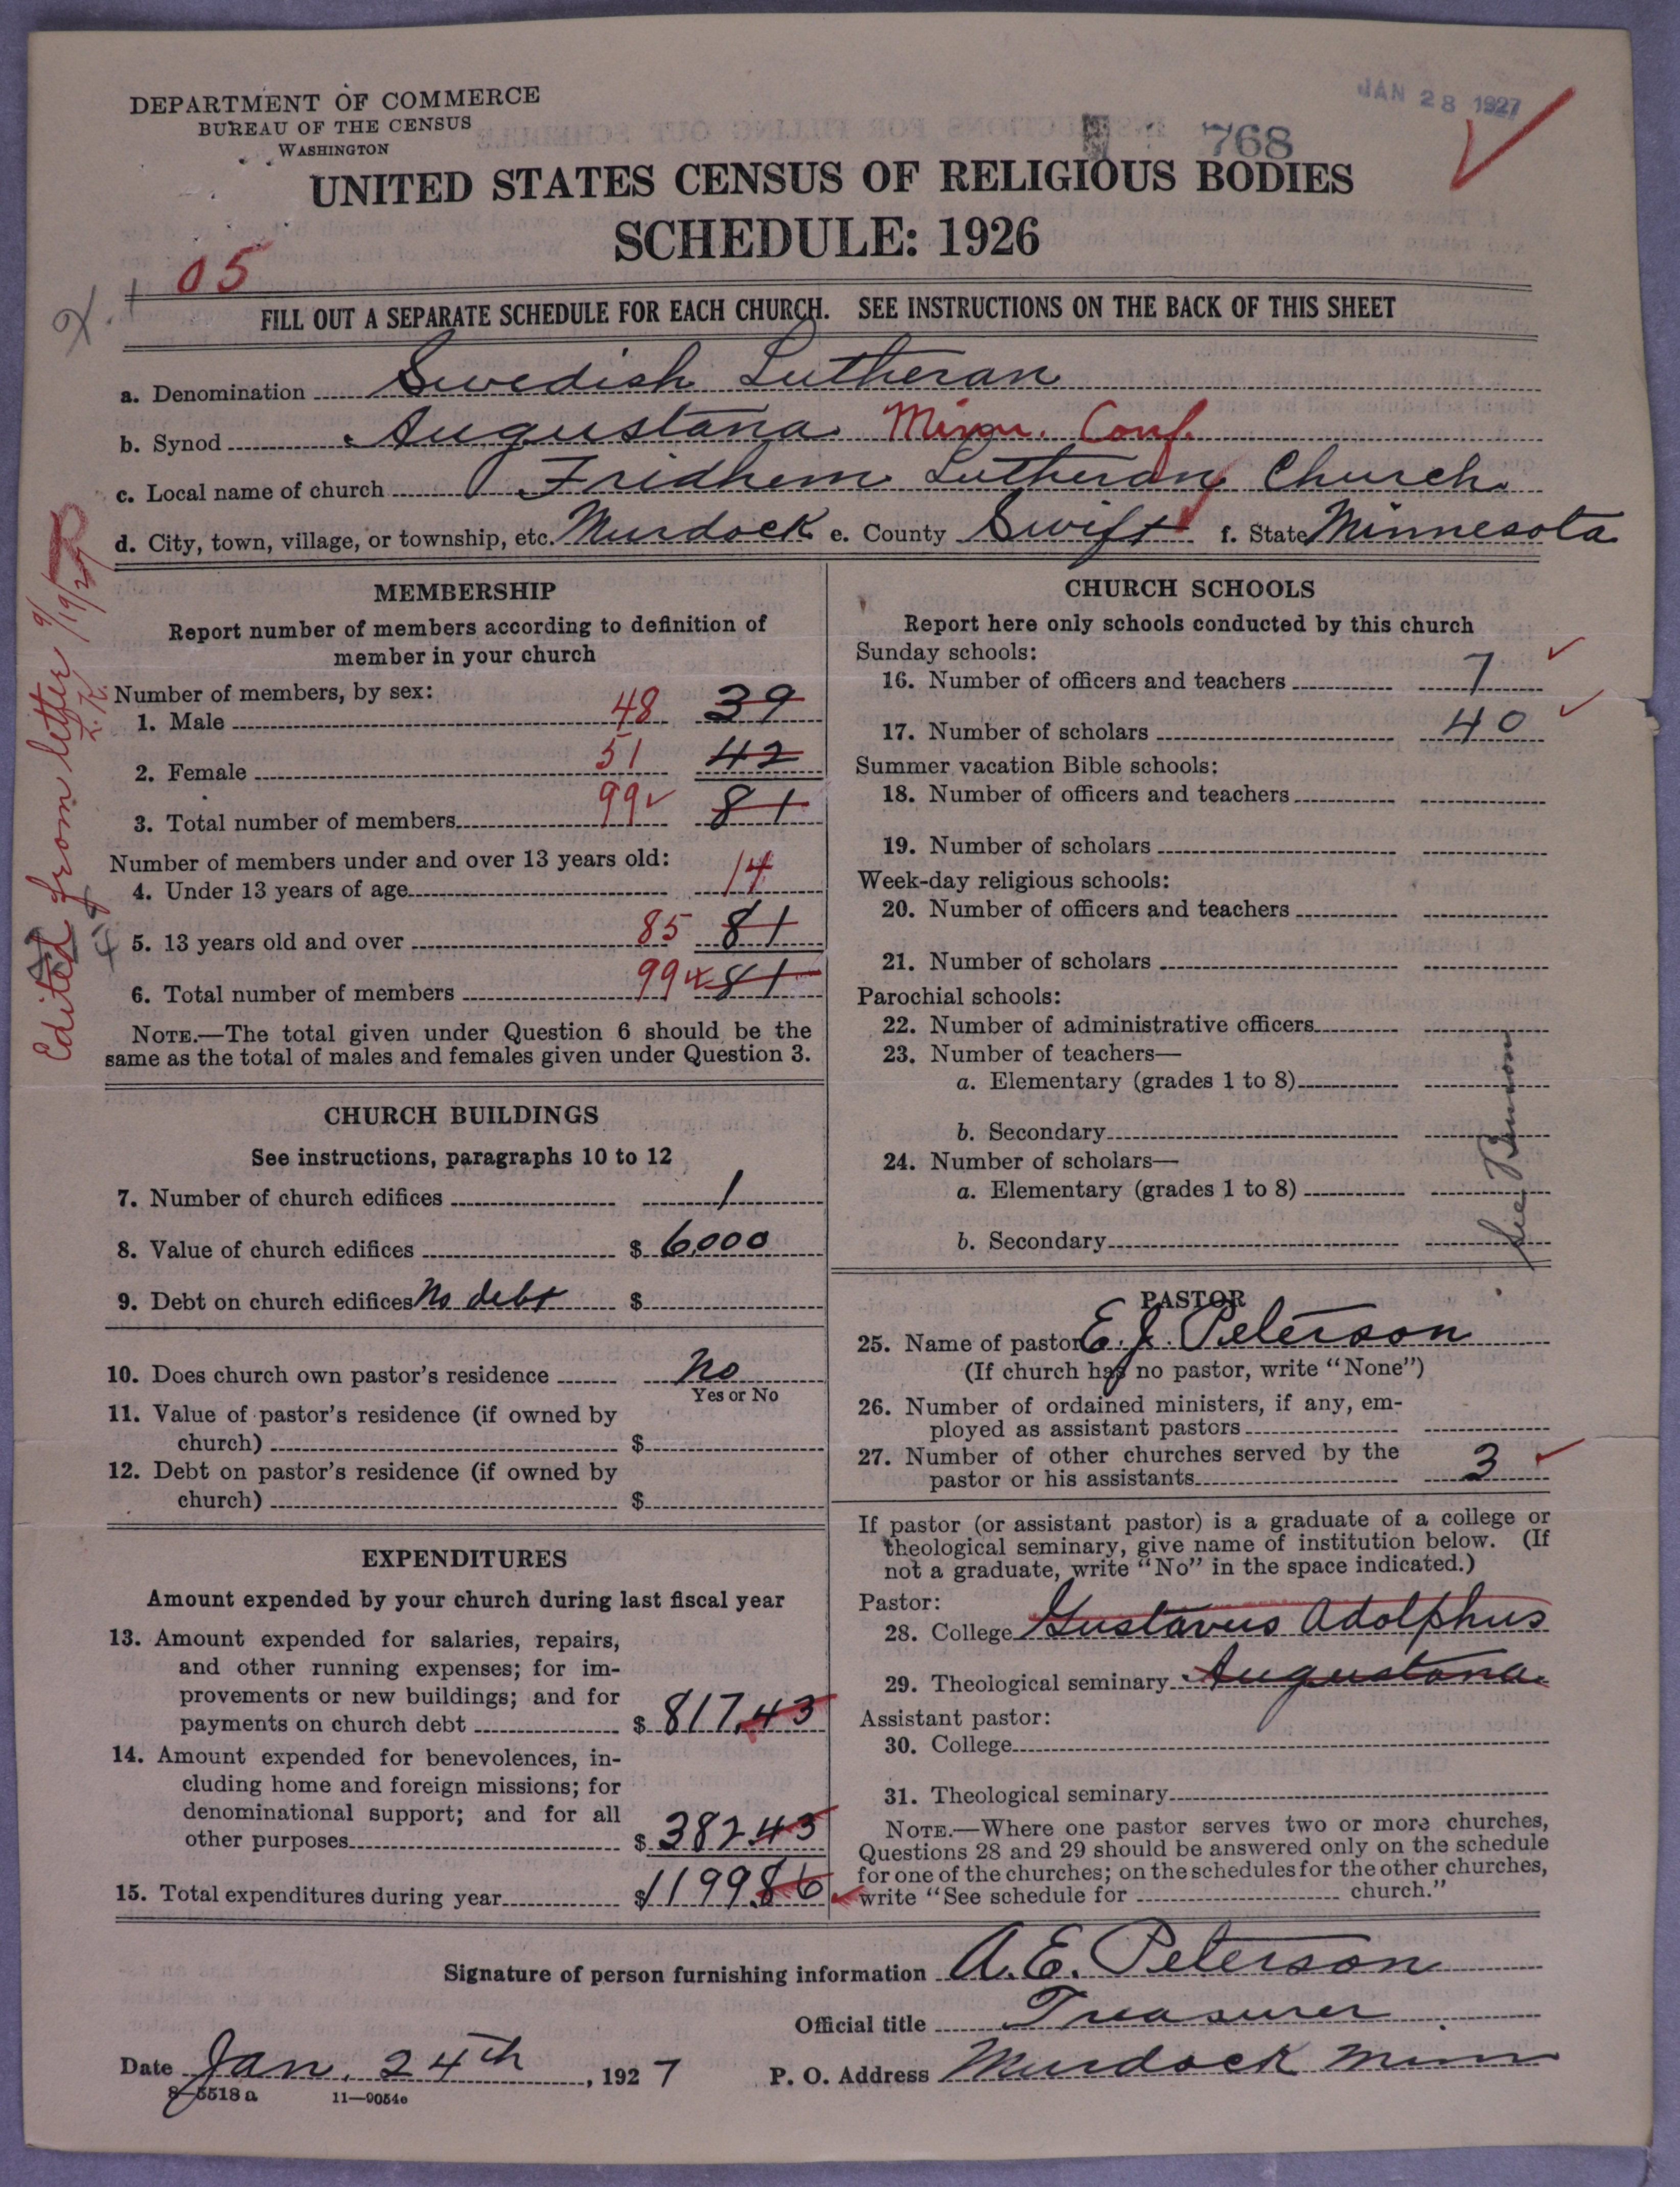 DEPARTMENT OF COMMERCE
BUREAU OF THE CENSUS
WASHINGTON
JAN 28 1927
768
UNITED STATES CENSUS OF RELIGIOUS BODIES
SCHEDULE: 1926
05
FILL OUT A SEPARATE SCHEDULE FOR EACH CHURCH. SEE INSTRUCTIONS ON THE BACK OF THIS SHEET
a. Denomination Swedish Lutheran
b. Synod Augustana Minn. Conf.
c. Local name of church Fridhem Lutheran Church.
d. City, town, village, or township, etc. Murdock e. County Swift f. State Minnesota
Edited from letter 9/19/27
MEMBERSHIP
Report number of members according to definition of
member in your church
Number of members, by sex:
1. Male 48 39
2. Female 51 42
3. Total number of members 99 81
Number of members under and over 13 years old:
4. Under 13 years of age 14
5. 13 years old and over 85 81
6. Total number of members 99 81
NOTE.—The total given under Question 6 should be the
same as the total of males and females given under Question 3.
CHURCH BUILDINGS
See instructions, paragraphs 10 to 12
7. Number of church edifices 1
8. Value of church edifices $ 6000
9. Debt on church edifices No debt $
10. Does church own pastor's residence No
Yes or No
11. Value of pastor's residence (if owned by
church) $
12. Debt on pastor's residence (if owned by
church) $
EXPENDITURES
Amount expended by your church during last fiscal year
13. Amount expended for salaries, repairs,
and other running expenses; for im-
provements or new buildings; and for
payments on church debt $ 817.43
14. Amount expended for benevolences, in-
cluding home and foreign missions; for
denominational support; and for all
other purposes $ 382.43
15. Total expenditures during year $ 1199.86
CHURCH SCHOOLS
Report here only schools conducted by this church
Sunday schools:
16. Number of officers and teachers 7
17. Number of scholars 40
Summer vacation Bible schools:
18. Number of officers and teachers
19. Number of scholars
Week-day religious schools:
20. Number of officers and teachers
21. Number of scholars
Parochial schools:
22. Number of administrative officers
23. Number of teachers—
a. Elementary (grades 1 to 8)
b. Secondary
24. Number of scholars—
a. Elementary (grades 1 to 8)
b. Secondary
See Benson
PASTOR
25. Name of pastor E. J. Peterson
(If church has no pastor, write "None")
26. Number of ordained ministers, if any, em-
ployed as assistant pastors
27. Number of other churches served by the
pastor or his assistants 3
If pastor (or assistant pastor) is a graduate of a college or
theological seminary, give name of institution below. (If
not a graduate, write "No" in the space indicated.)
Pastor:
28. College Gustavus Adolphus
29. Theological seminary Augustana
Assistant pastor:
30. College
31. Theological seminary
NOTE.—Where one pastor serves two or more churches,
Questions 28 and 29 should be answered only on the schedule
for one of the churches; on the schedules for the other churches,
write "See schedule for church."
Signature of person furnishing information A. E. Peterson
Official title Treasurer
Date Jan. 24th, 1927 P. O. Address Murdock Minn
8-5518 a 11—9054e